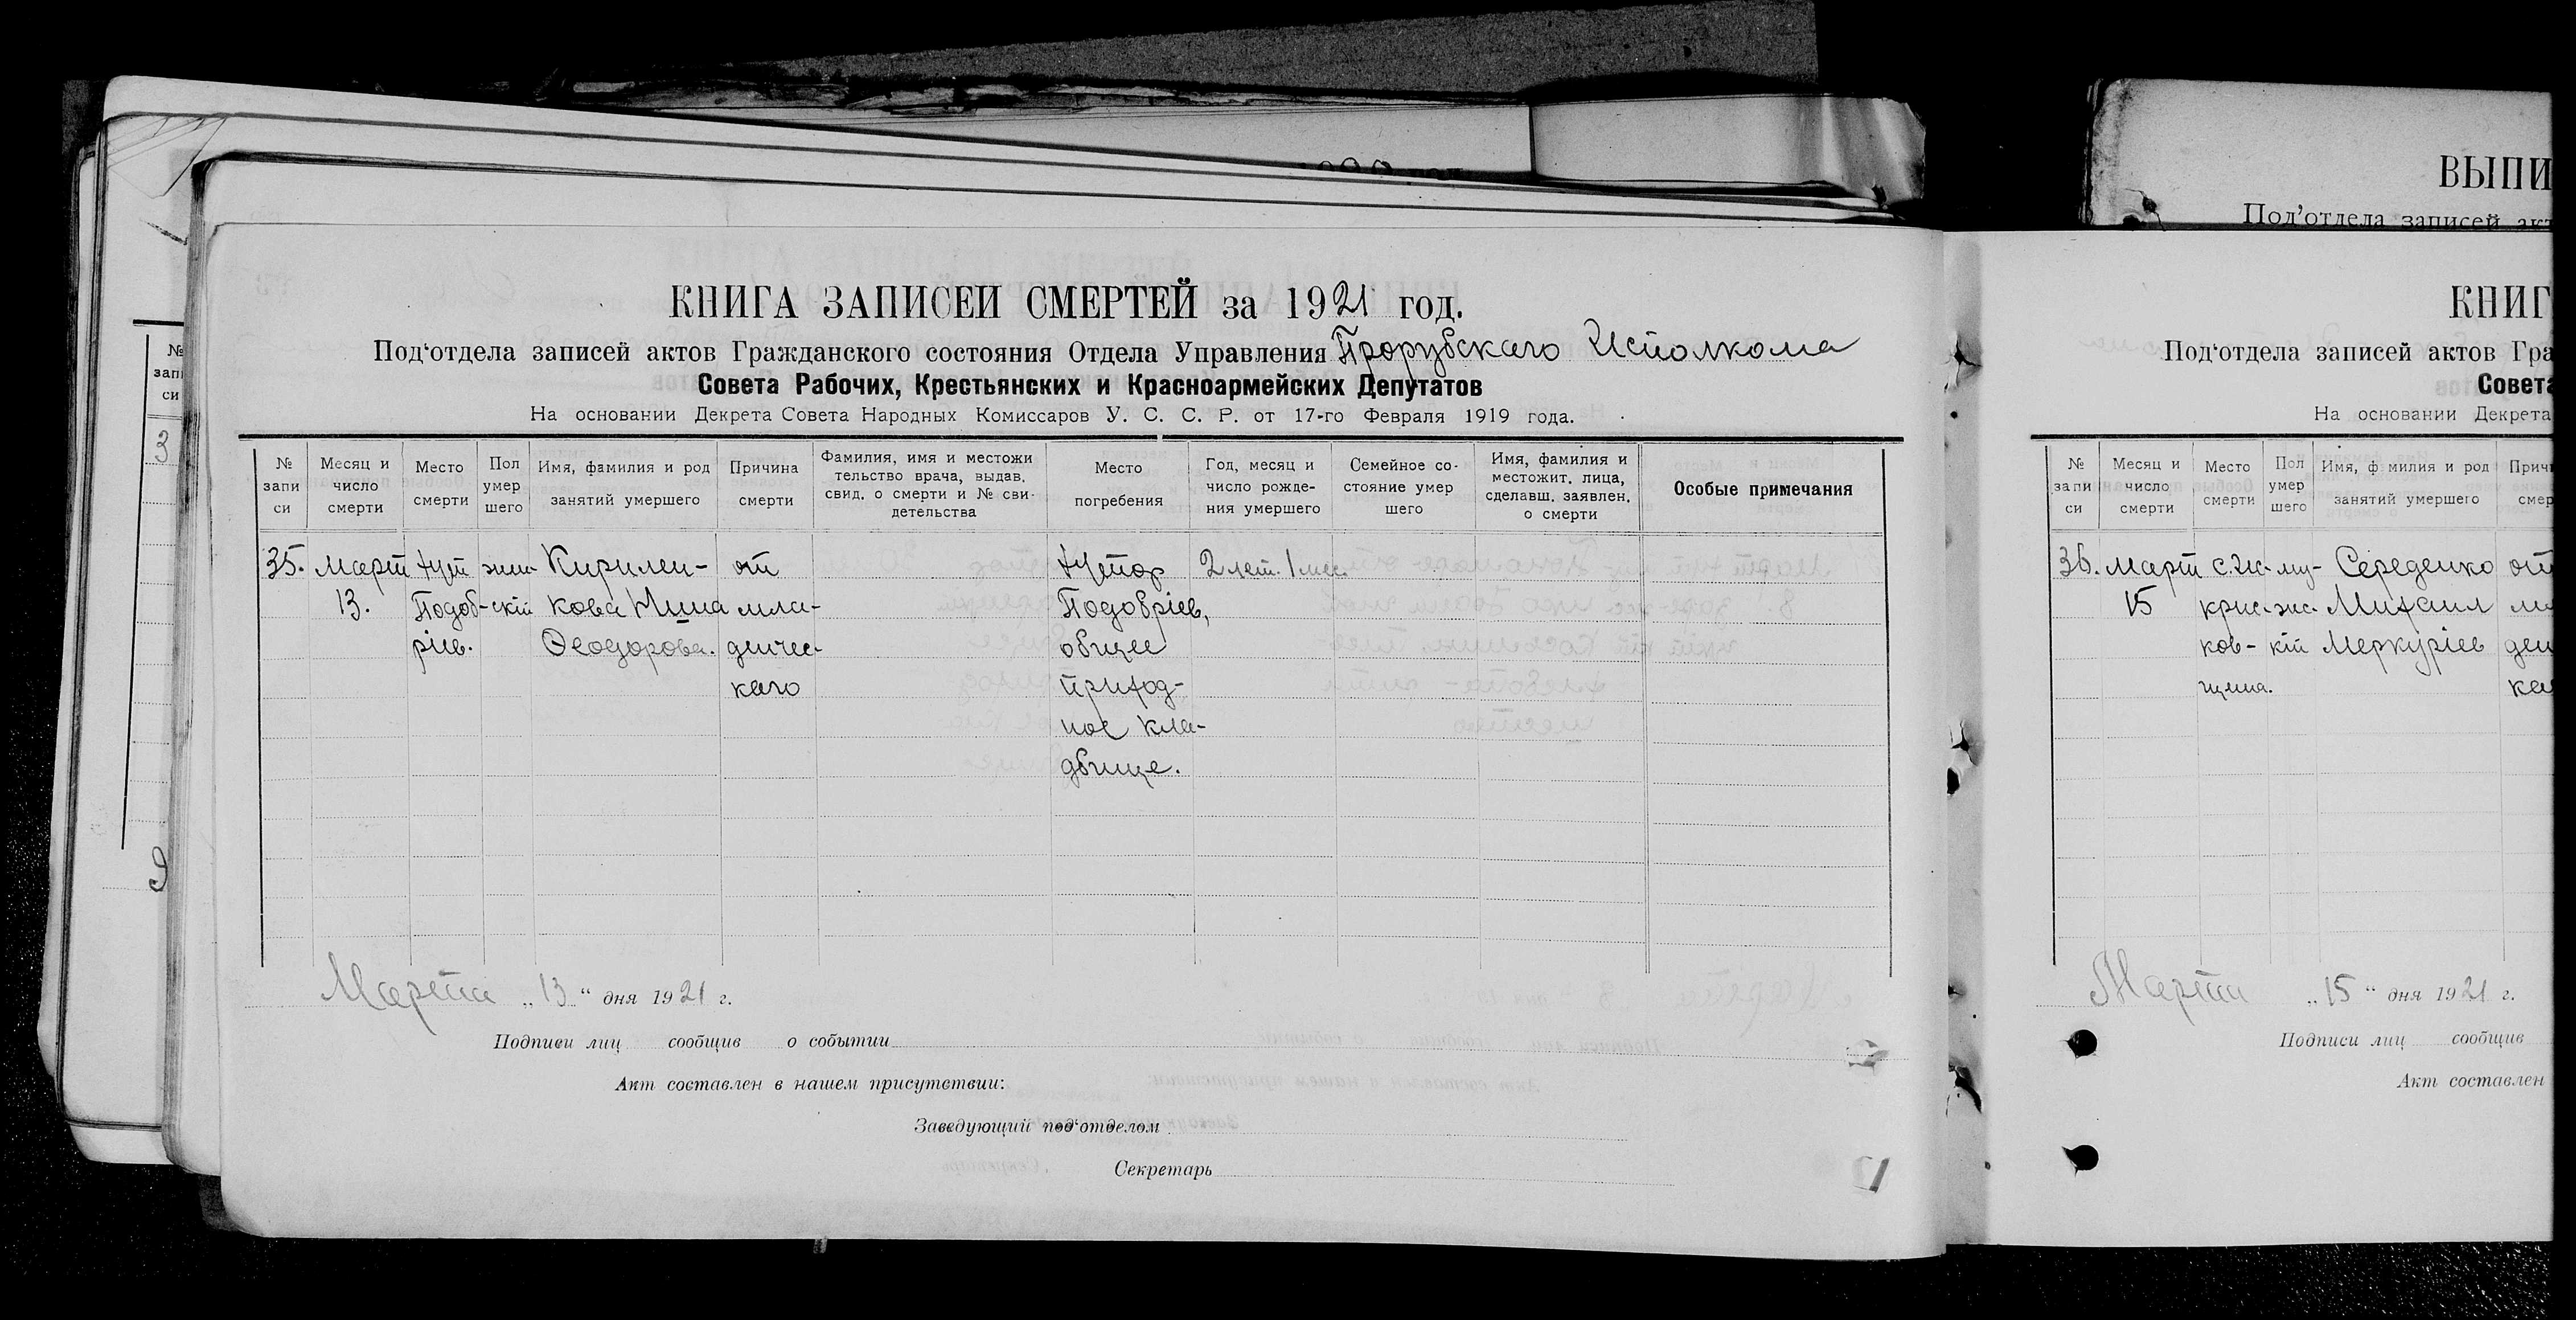 ВЫПИ
Под'отдела записей акт
КНИГА ЗАПИСЕЙ СМЕРТЕЙ за 1921 год.
Под'отдела записей актов Гражданского состояния Отдела Управления Прорубскаго Исполкома
Совета Рабочих, Крестьянских и Красноармейских Депутатов
На основании Декрета Совета Народных Комиссаров У. С. С. Р. от 17-го Февраля 1919 года.
№ запи си
Месяц и число смерти
Место смерти
Пол умер шего
Имя, фамилия и род занятий умершего
Причина смерти
Фамилия, имя и местожи тельство врача, выдав. свид. о смерти и № сви- детельства
Место погребения
Год, месяц и число рожде- ния умершего
Семейное со- стояние умер шего
Имя, фамилия и местожит. лица, сделавш. заявлен. о смерти
Особые примечания
35. Март хут жен- Кирилен- от хутор 2 лет. 1 мес.
13. Подоб- скій кова Нина мла- Подобріев,
ріев. Ѳеодорова. денчес- общее
каго приход-
ное кла-
дбище.
Марта „13“ дня 1921 г.
Подписи лиц сообщив о событии
Акт составлен в нашем присутствии:
Заведующий под'отделом
Секретарь
КНИГ
Под'отдела записей актов Гра
Совета
На основании Декрета
№ запи си
Месяц и число смерти
Место смерти
Пол умер шего
Имя, фамилия и род занятий умершего
Прич смер
36. Март му- Середенко от
15 Михаил
ков- кій Меркуріев ден
щина. ка
Марта „15“ дня 1921 г.
Подписи лиц сообщив
Акт составлен
№
запи
си
3